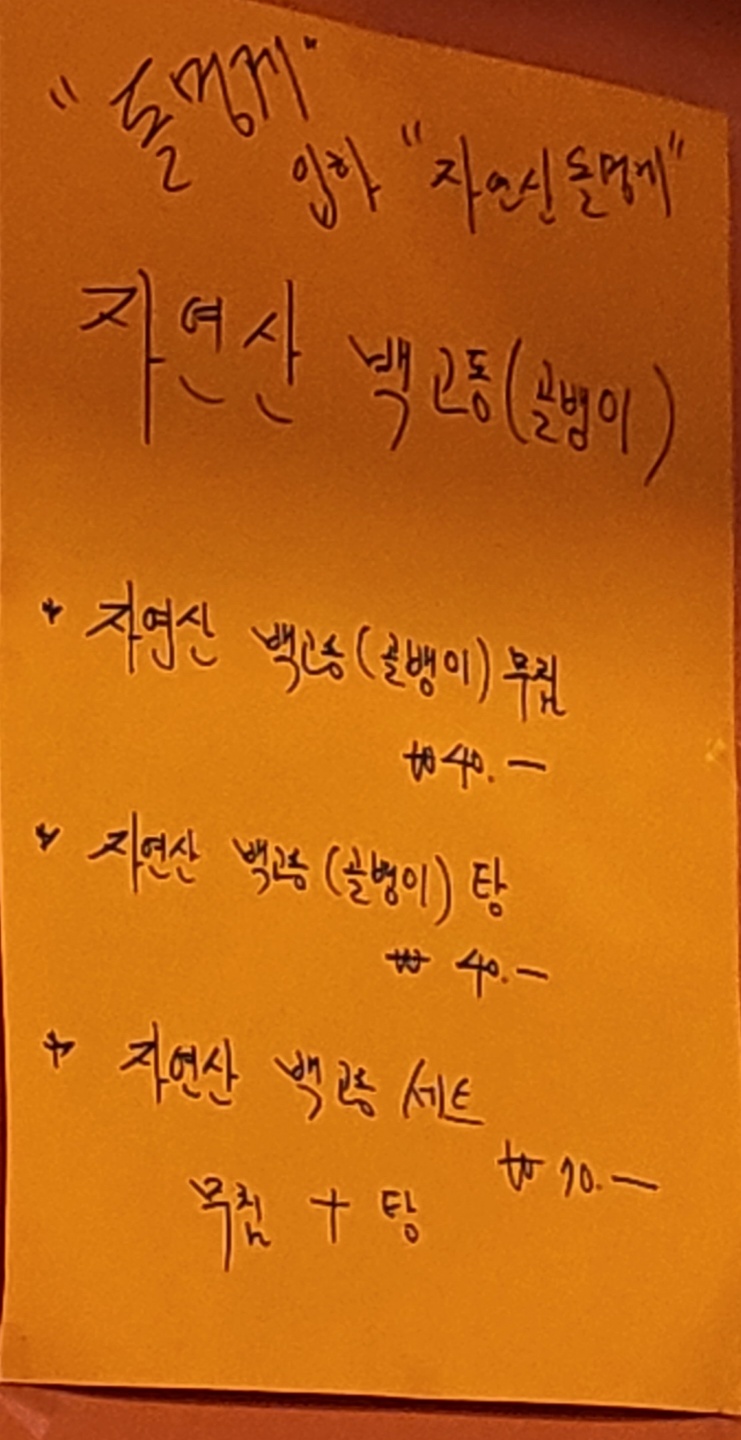 "돌멍게"
입하 "자연산 돌멍게"
자연산 백고동(골뱅이)
* 자연산 백고동(골뱅이)무침
₩40.—
* 자연산 백고동(골뱅이)탕
₩ 40.—
* 자연산 백고동 세트
₩70.—
무침 + 탕